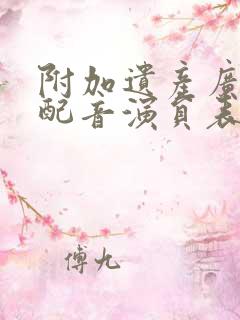 附加遺產廣
配音演員表
傅九